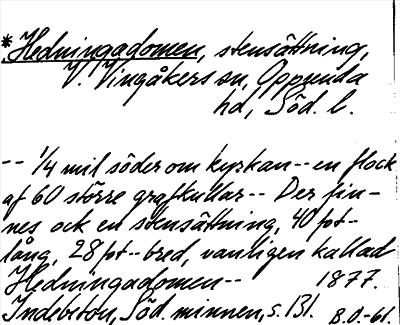 *Hedningadomen, stensättning,
V. Vingåkers sn, Oppunda
hd, Söd. l.
-- 1/4 mil söder om kyrkan -- en flock
af 60 större grafkullar -- Der fin-
nes ock en stensättning, 40 fot--
lång, 28 fot -- bred, vanligen kallad
Hedningadomen -- 1877.
Indebetou, Söd. minnen, s. 131. B.O.-61.